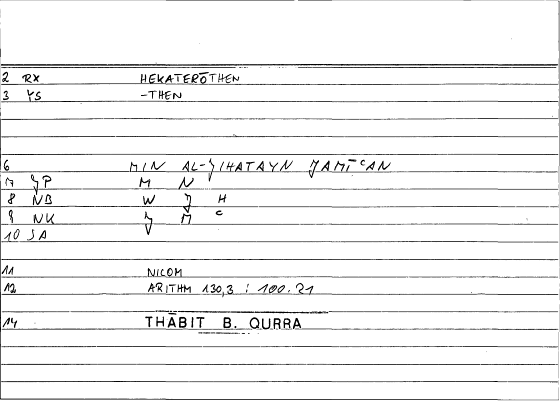 2 RX HEKATERŌTHEN
3 YS -THEN
6 MIN AL-ǦIHATAYN ǦAMĪʿAN
7 ǦP M N
8 NB W Ǧ H
9 NK Ǧ M ʿ
10 JA
11 NICOM
12 ARITHM 130,3 : 100.21
14 THĀBIT B. QURRA